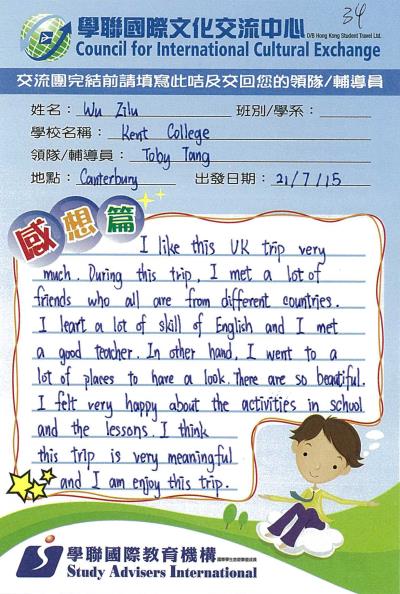 34
學聯國際文化交流中心 D/B Hong Kong Student Travel Ltd.
Council for International Cultural Exchange
交流團完結前請填寫此咭及交回您的領隊/輔導員
姓名： Wu Zilu 班別/學系：
學校名稱： Kent College
領隊/輔導員： Toby Tang
地點： Canterbury 出發日期： 21/7/15
感想篇
I like this UK trip very
much. During this trip, I met a lot of
friends who all are from different countries.
I leart a lot of skill of English and I met
a good teacher. In other hand, I went to a
lot of places to have a look. There are so beautiful.
I felt very happy about the activities in school
and the lessons. I think
this trip is very meaningful
and I am enjoy this trip.
學聯國際教育機構
Study Advisers International